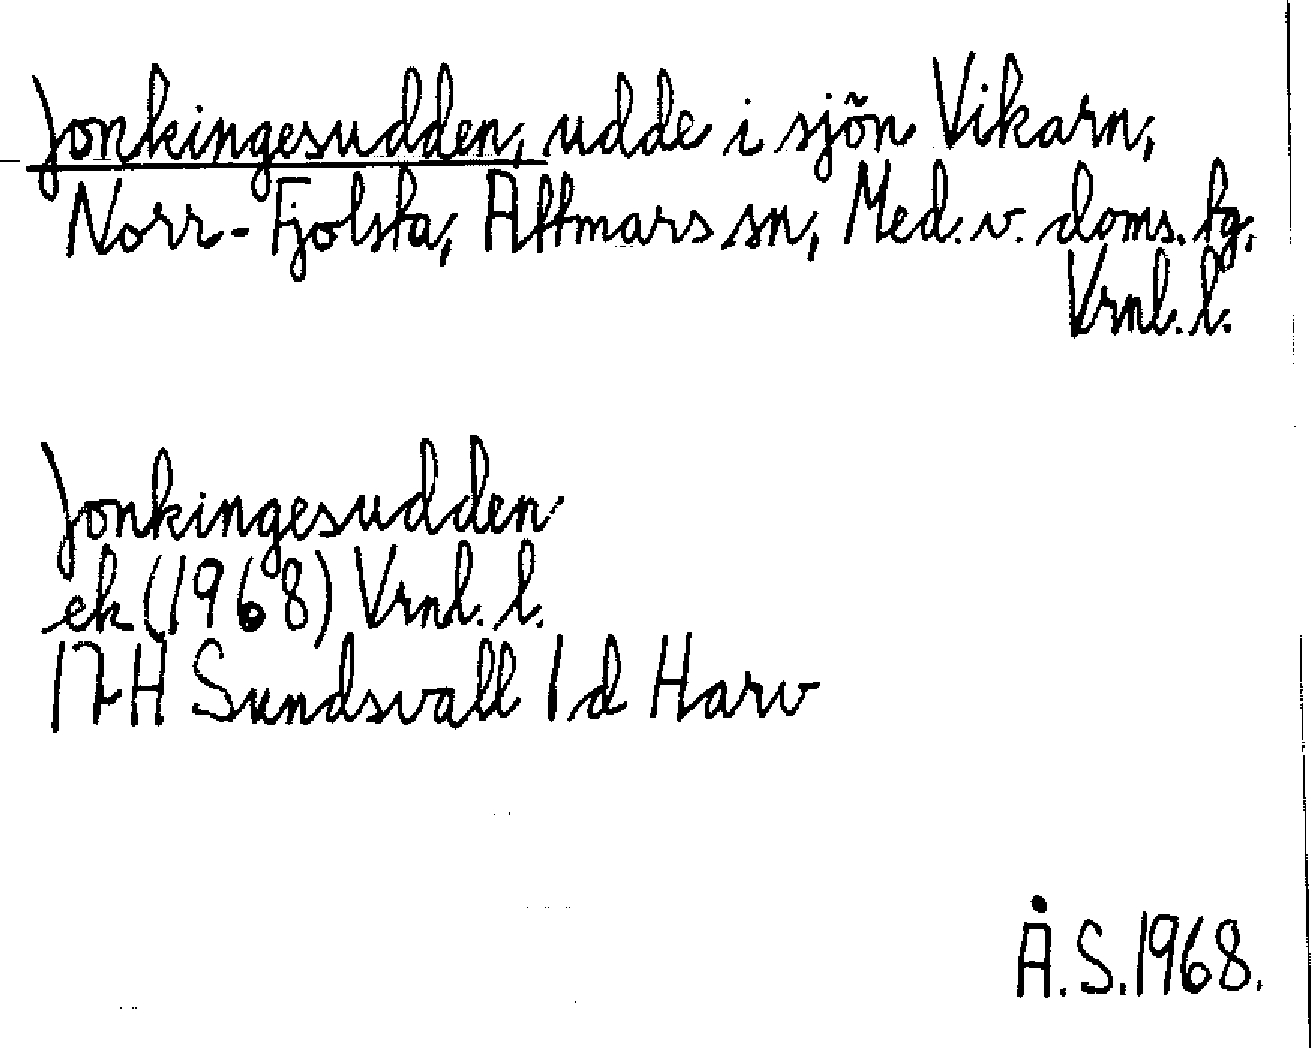 Jonkingesudden, udde i sjön Vikarn,
Norr-Fjolsta, Attmars sn, Med. v. doms. tg,
Vrnl. l.
Jonkingesudden
ek (1968) Vrnl. l.
17H Sundsvall 1d Harv
Å. S. 1968.